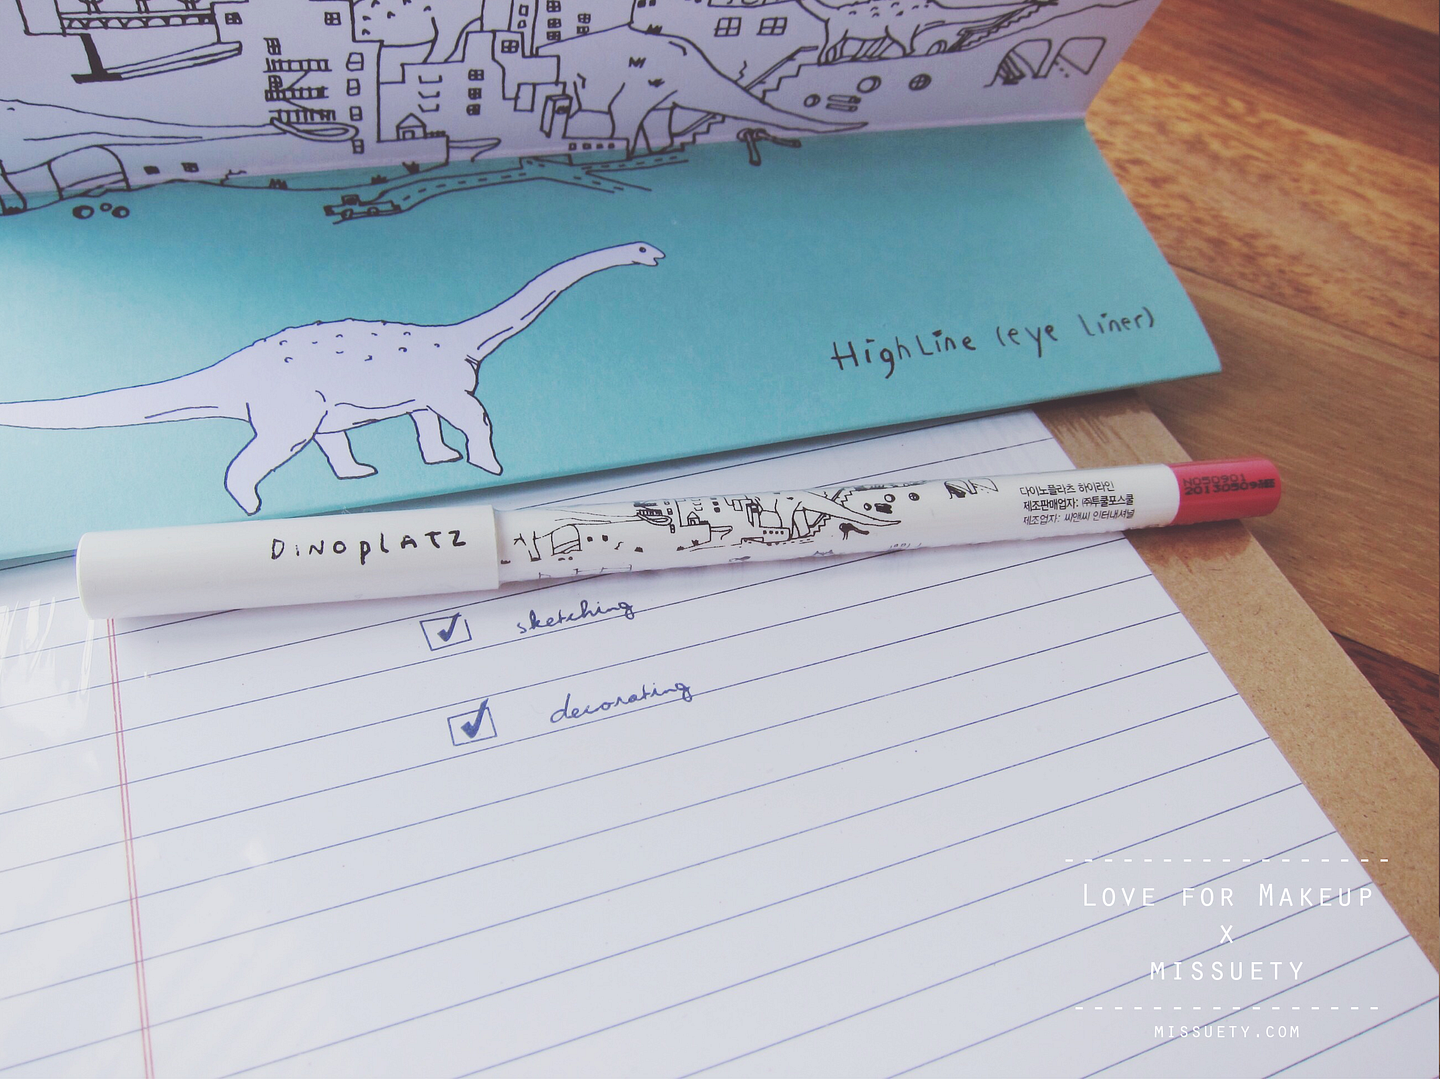 HighLine (eye Liner)
DiNOplATZ
다이노플라츠 하이라인
제조판매업자: ㈜투쿨포스쿨
제조업자: 씨앤씨 인터내셔널
NO50901
20130509ME
sketching
decorating
LOVE FOR MAKEUP
X
MISSUETY
MISSUETY.COM